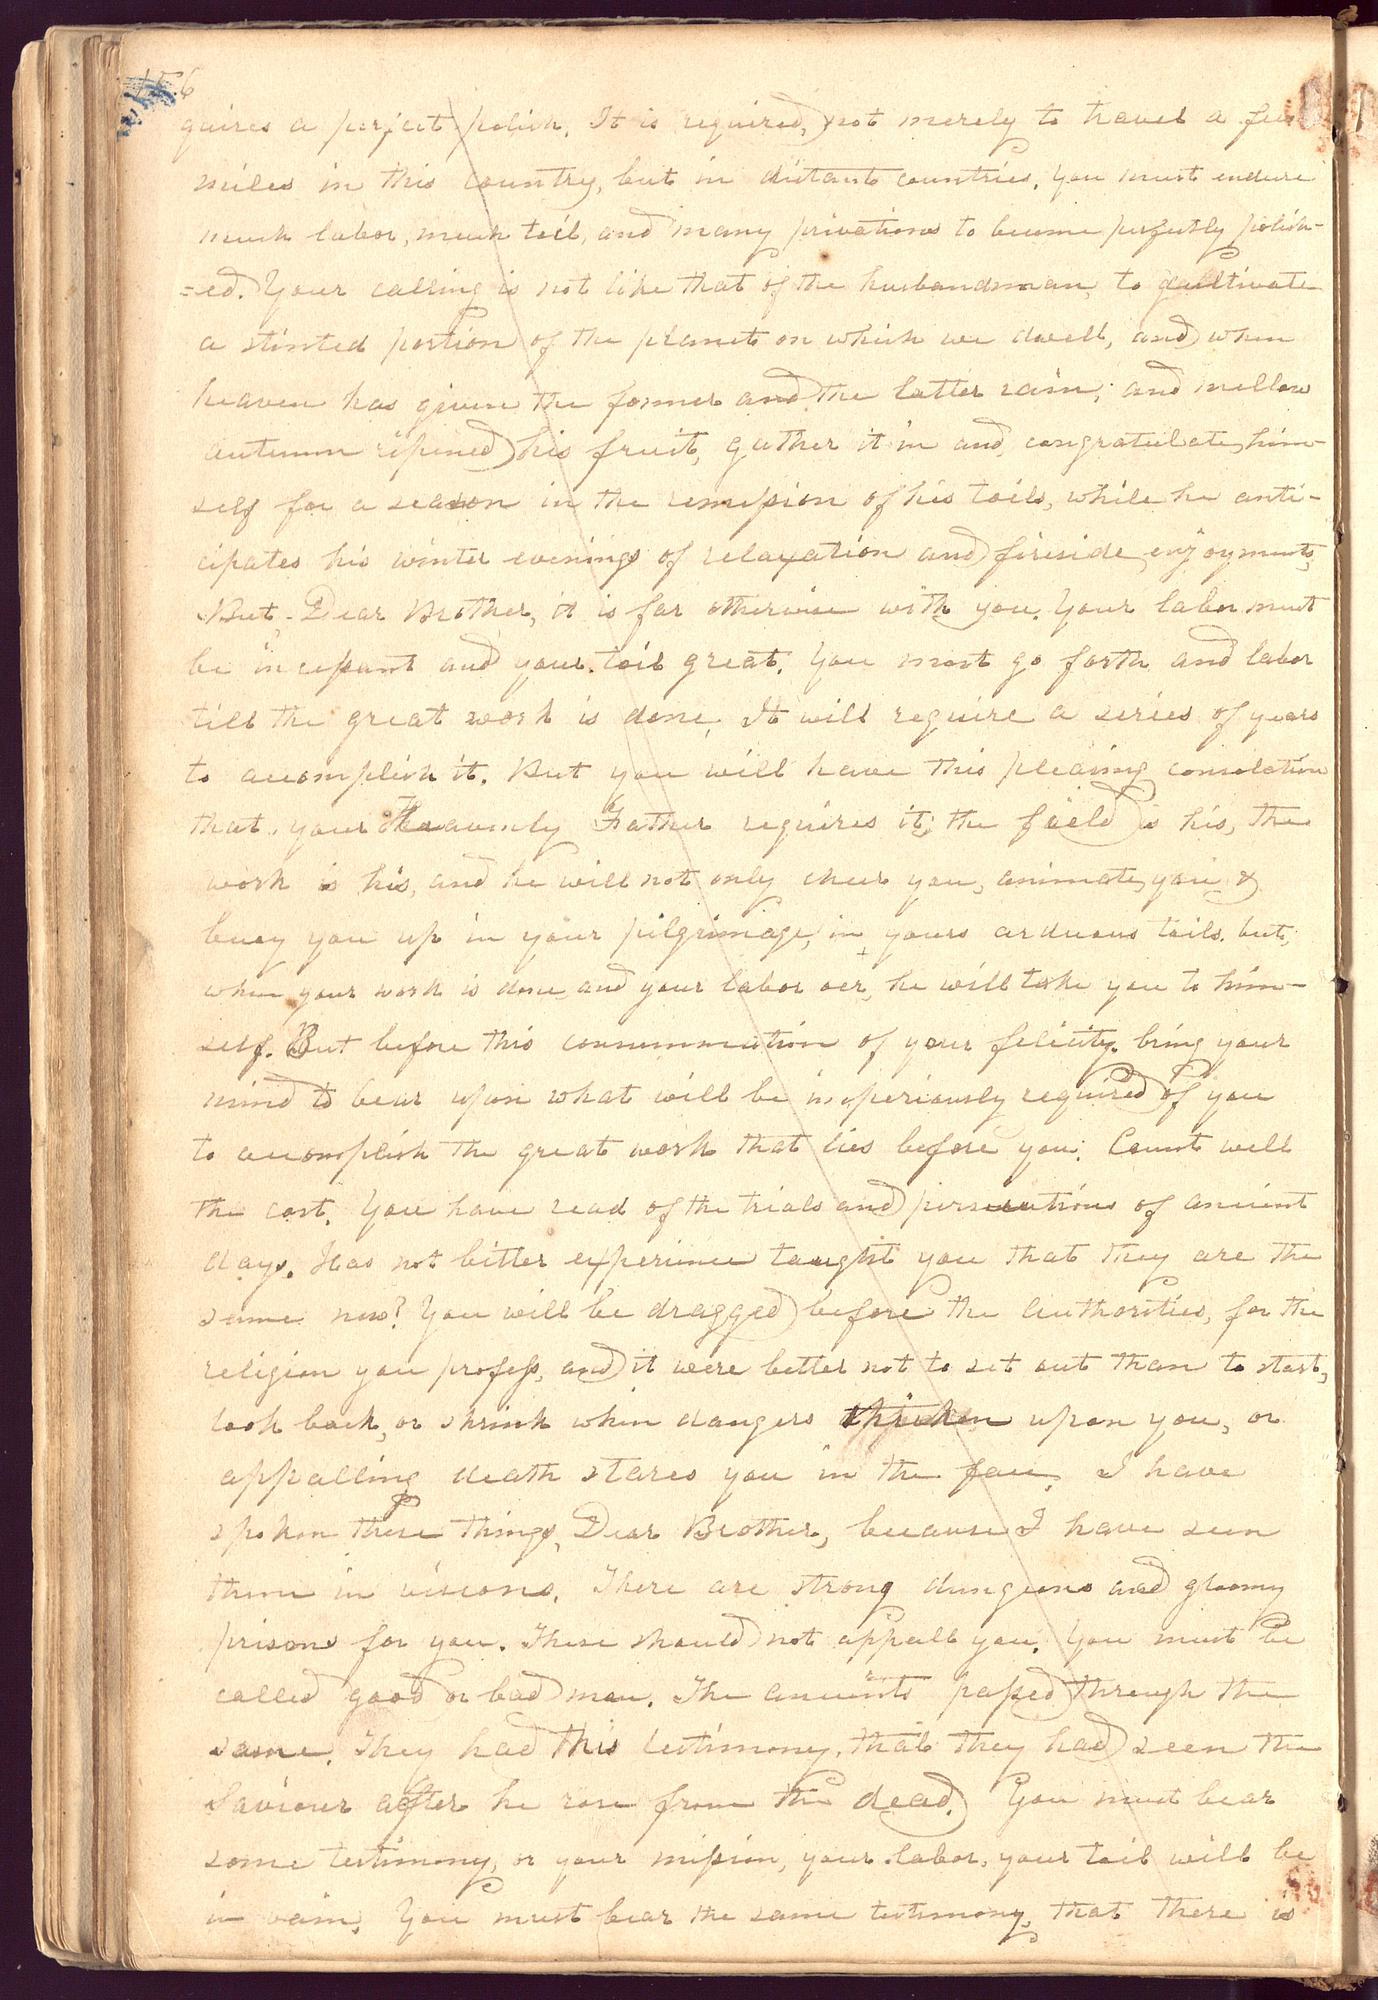 156
quires a perfect polish. It is required, not merely to travel a few
miles in this country, but in distant countries. You must endure
much labor, much toil, and many privations to become perfectly polish-
=ed. Your calling is not like that of the husbandman, to cultivate
a stinted portion of the planet on which we dwell, and when
heaven has given the former and the latter rain; and mellow
autumn ripened his fruit, gather it in and congratulate him-
self for a season in the remission of his toils, while he anti-
cipates his winter evenings of relaxation and fireside enjoyments.
But Dear Brother, it is far otherwise with you. Your labor must
be incessant and your toil great. You must go forth and labor
till the great work is done. It will require a series of years
to accomplish it. But you will have this pleasing consolation
that your Heavenly Father requires it; the field is his, the
work is his, and he will not only cheer you, animate you &
buoy you up in your pilgrimage, in yours arduous toils. but,
when your work is done and your labor oer, he will take you to him-
self. But before this consummation of your felicity. bring your
mind to bear upon what will be imperiously required of you
to accomplish the great work that lies before you. Count well
the cost. You have read of the trials and persecutions of ancient
days. Has not bitter experience taught you that they are the
same now? You will be dragged before the authorities, for the
religion you profess, and it were better not to set out than to start,
look back, or shrink when dangers thicken upon you, or
appalling death stares you in the face. I have
spoken these things, Dear Brother, because I have seen
them in visions. There are strong dungeons and gloomy
prisons for you. These should not appall you. You must be
called good or bad man. The ancients passed through the
same. They had this testimony, that they had seen the
Saviour after he rose from the dead. You must bear
some testimony, or your mission, your labor, your toil will be
in vain. You must bear the same testimony, that there is